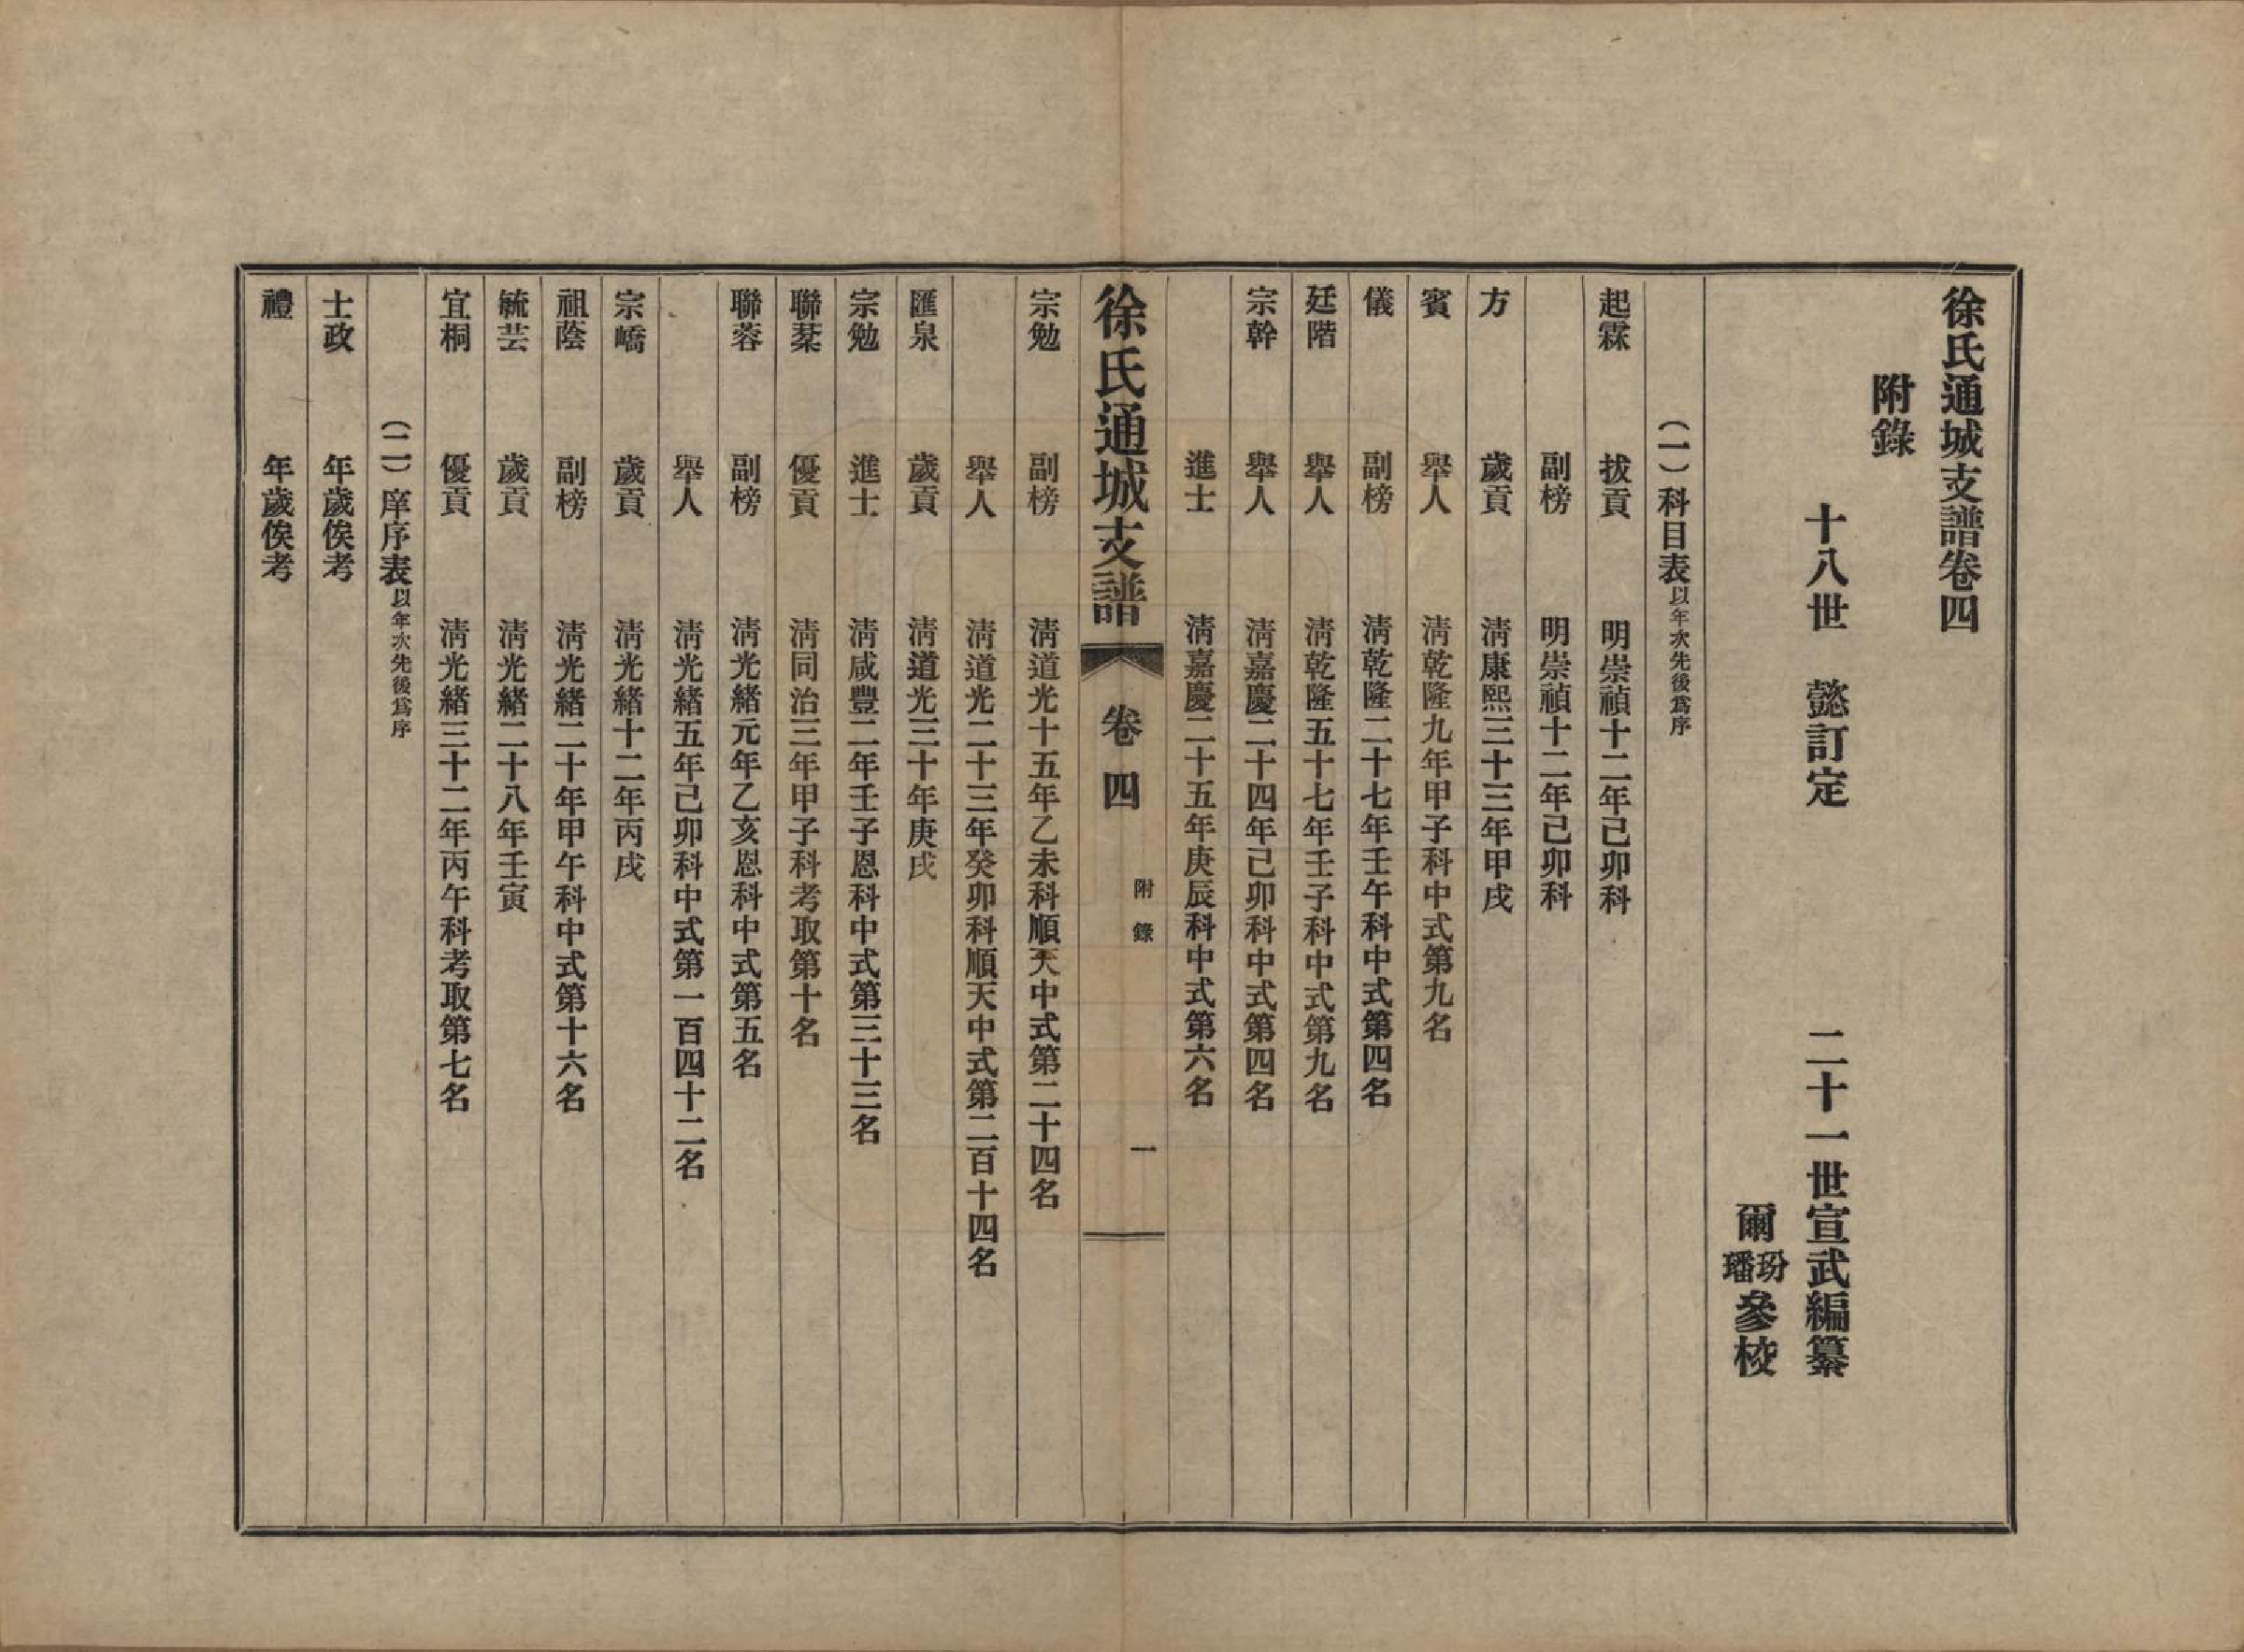 徐氏通城支譜卷四
附錄
十八世　懿訂定　二十一世宣武編纂
爾玢璠參校
（一）科目表以年次先後爲序
起霖　拔貢　明崇禎十二年己卯科
副榜　明崇禎十二年己卯科
方　歲貢　清康熙三十三年甲戌
賓　舉人　清乾隆九年甲子科中式第九名
儀　副榜　清乾隆二十七年壬午科中式第四名
廷階　舉人　清乾隆五十七年壬子科中式第九名
宗幹　舉人　清嘉慶二十四年己卯科中式第四名
進士　清嘉慶二十五年庚辰科中式第六名
徐氏通城支譜　卷四　附錄　一
宗勉　副榜　清道光十五年乙未科順天中式第二十四名
舉人　清道光二十三年癸卯科順天中式第二百十四名
匯泉　歲貢　清道光三十年庚戌
宗勉　進士　清咸豐二年壬子恩科中式第三十三名
聯棻　優貢　清同治三年甲子科考取第十名
聯蓉　副榜　清光緒元年乙亥恩科中式第五名
舉人　清光緒五年己卯科中式第一百四十二名
宗嶠　歲貢　清光緒十二年丙戌
祖蔭　副榜　清光緒二十年甲午科中式第十六名
毓芸　歲貢　清光緒二十八年壬寅
宜桐　優貢　清光緒三十二年丙午科考取第七名
（二）庠序表以年次先後爲序
士政　年歲俟考
禮　年歲俟考